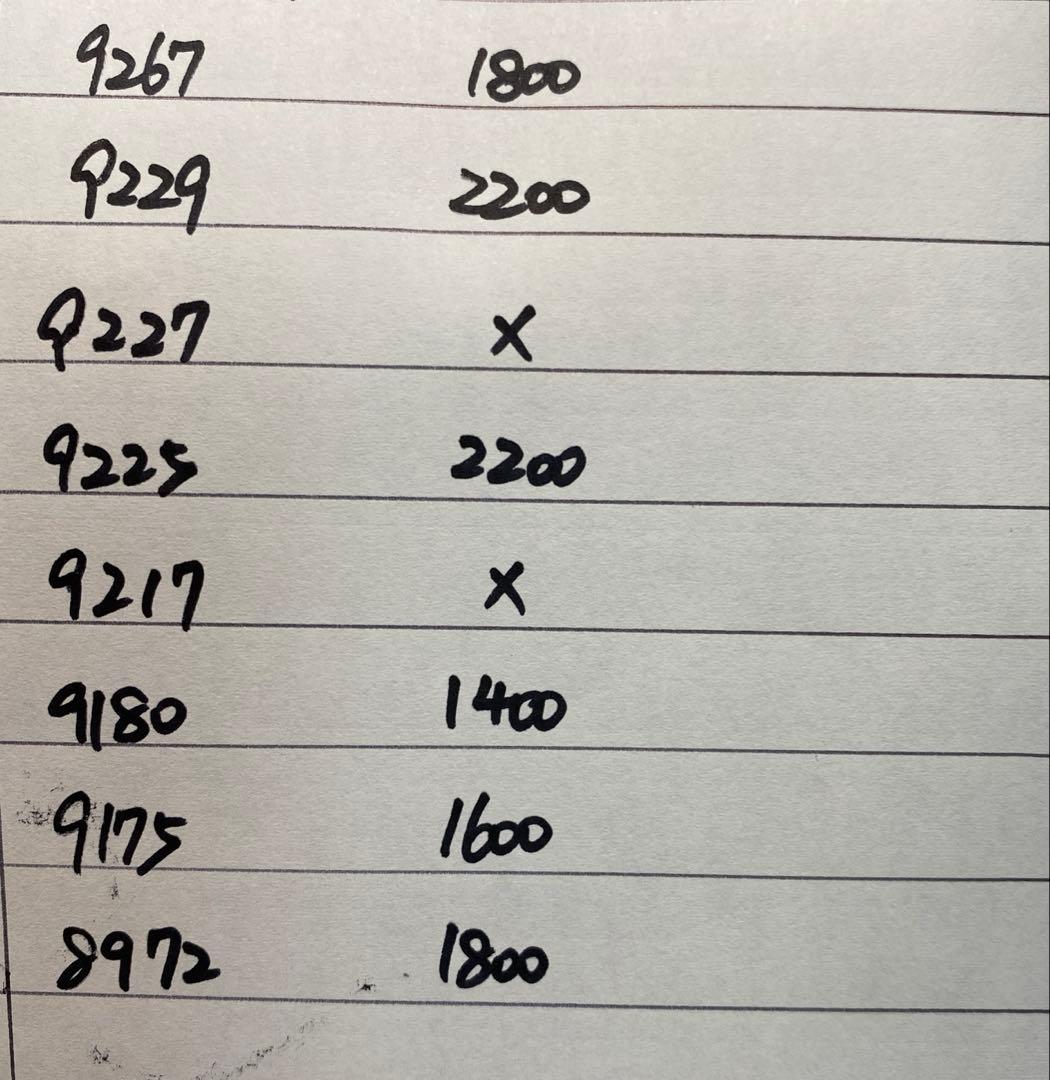 9267 1800
9229 2200
9227 X
9225 2200
9217 X
9180 1400
9175 1600
8972 1800